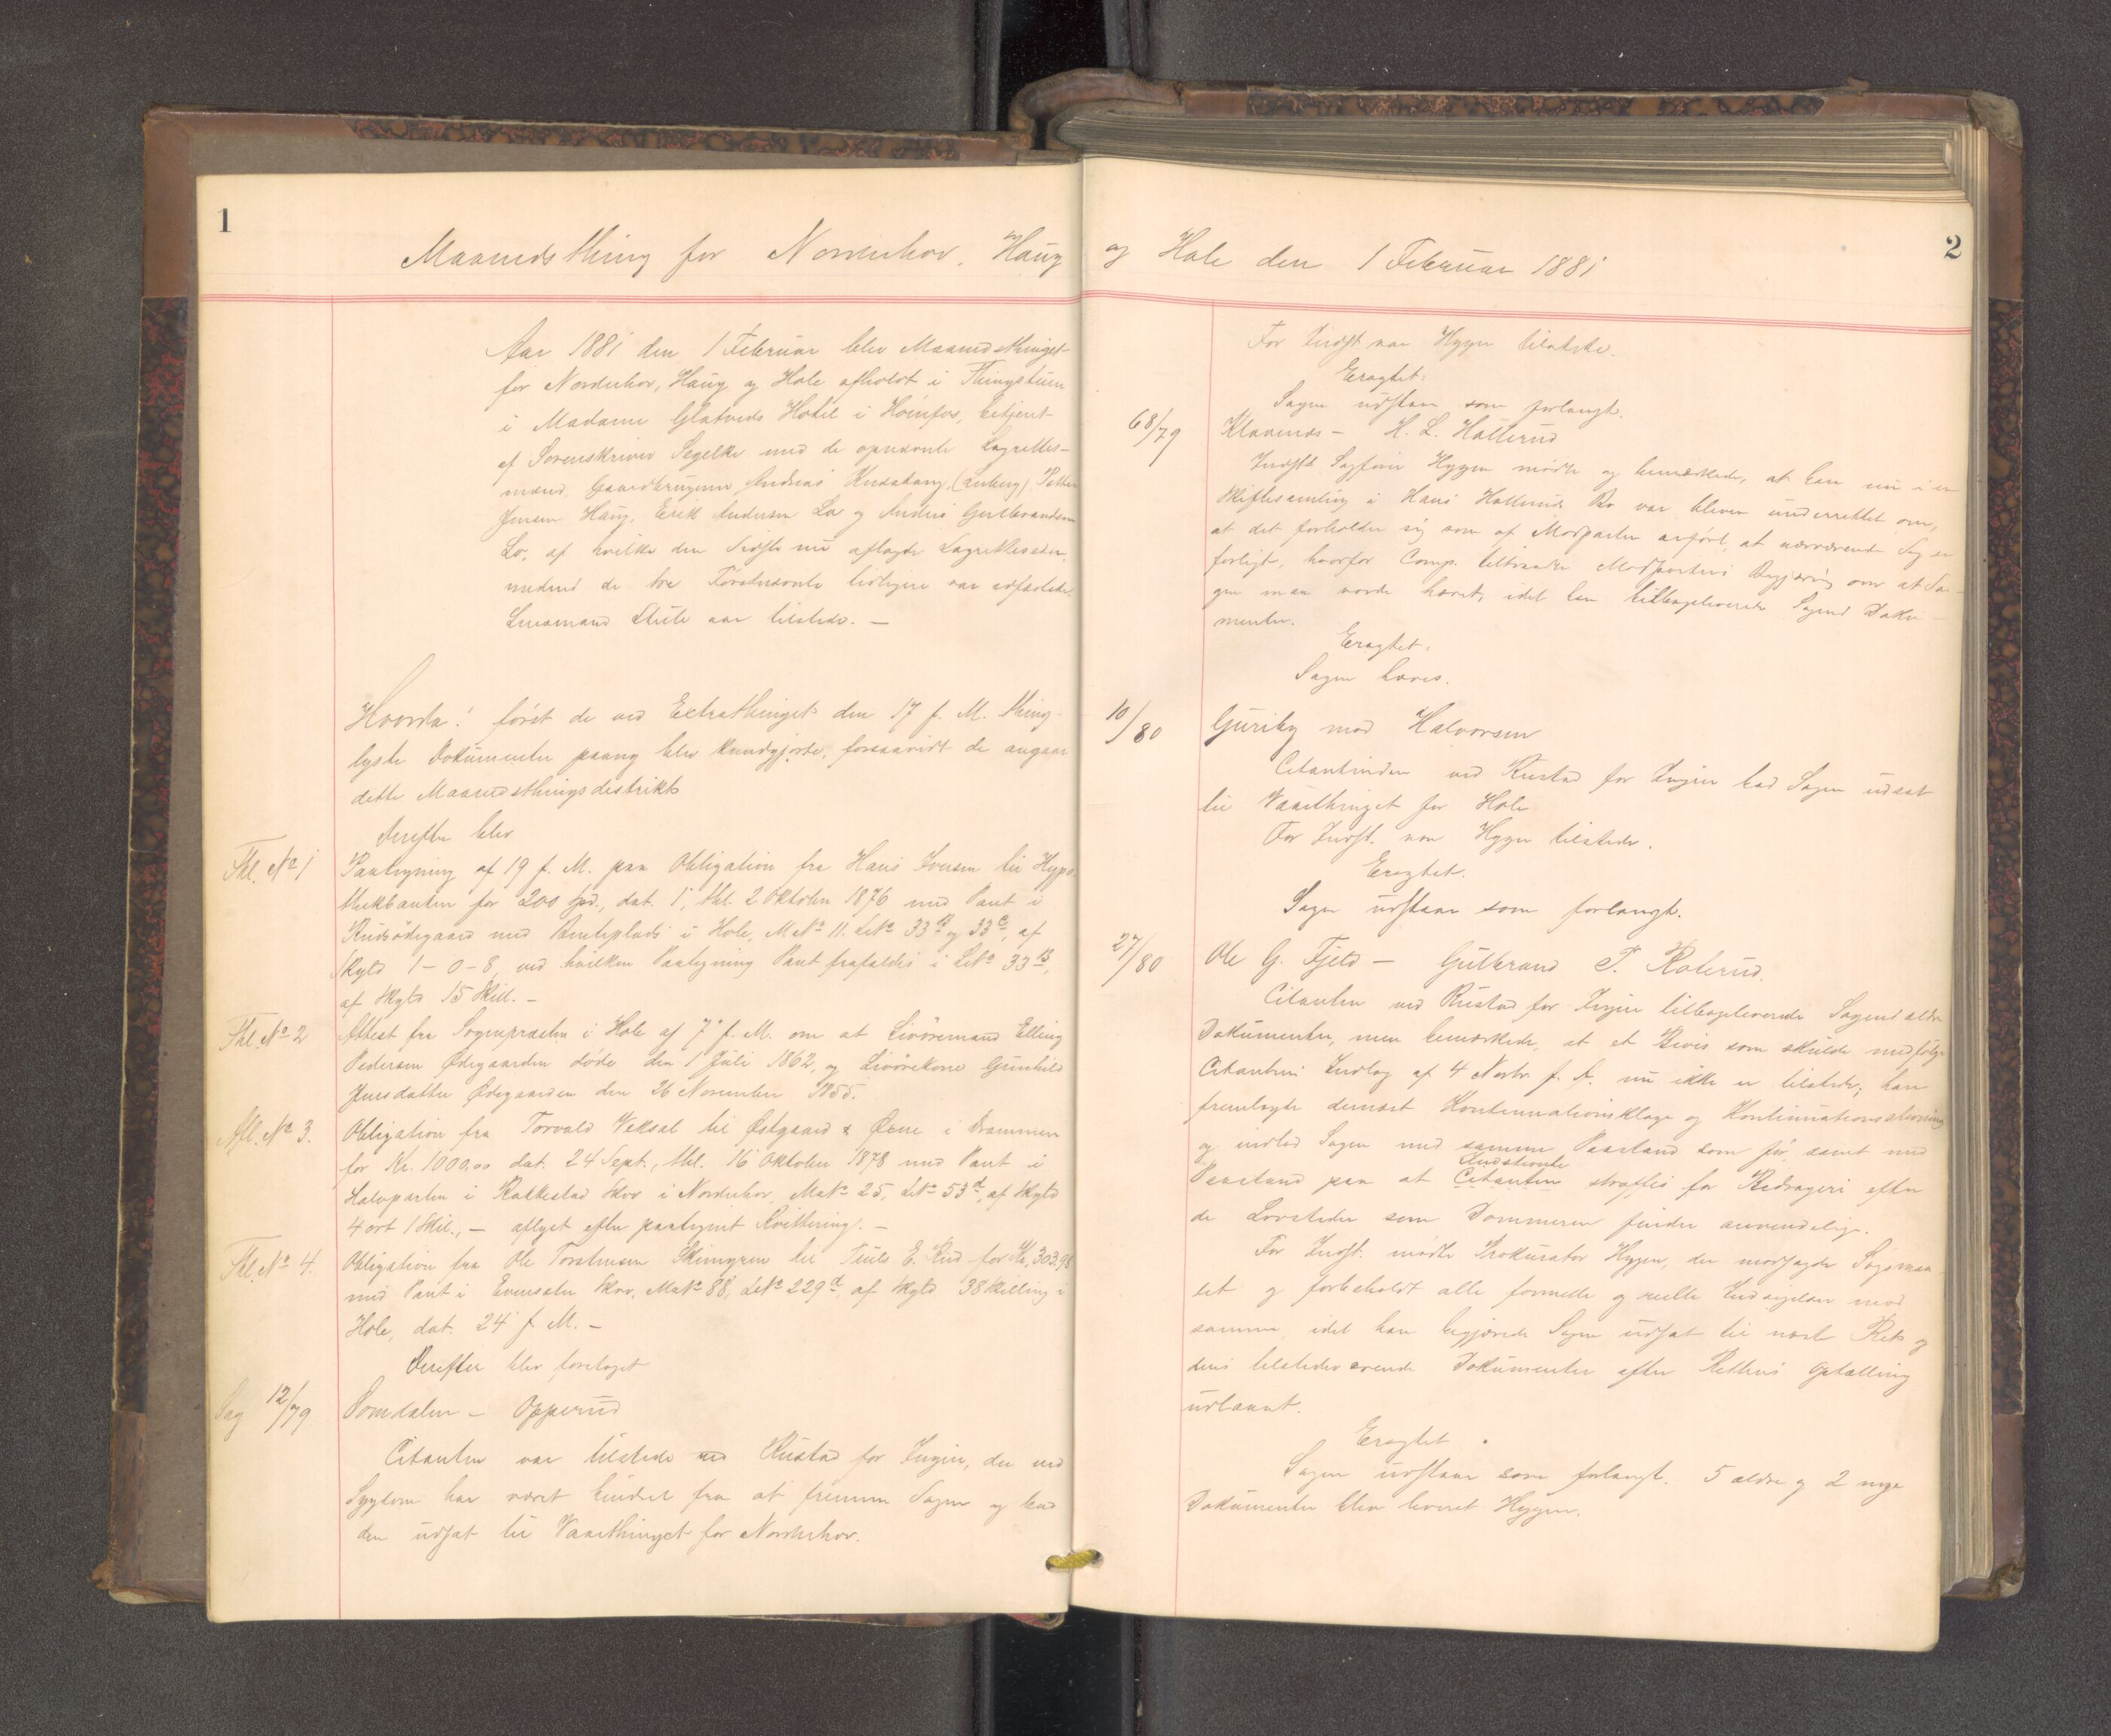 1
Maanedsthing for Norderhov, Haug
Aar 1881 den 1 Februar blev Maanedsthinget
for Norderhov, Haug og Hole afholdt i Thingstuen
i Madame Glatveds Hotel i Hønefos, betjent
af Sorenskriver Segelke med de opnævnte Lagrettes-
mænd Gaardbrugerne Andreas (Lerberg) Petter
Jensen Haug, Erik Andersen Lo og Anders Gulbrandsen
Lo, af hvilke den Sidste nu aflagde Lagretteseden,
medens de tre Førstnævnte tidligere var edfæstede.
Lensmand Stube var tilstede. —
Hvorda: først de ved Extrathinget den 17 f. M. thing-
lyste Dokumenter paany blev kundgjorte, forsaavidt de angaar
dette Maanedsthingsdistrikt
Derefter blev
Thl. No 1
Paategning af 19 f. M. paa Obligation fra Hans Iversen til Hypo-
thekbanken for 200 Spd., dat. 1, thl. 2 Oktober 1876 med Pant i
Rudsødegaard med i Hole, M No 11. LNo 33 b og 33 c, af
Skyld 1-0-8, ved hvilken Paategning Pant frafaldes i LNo 33 b,
af Skyld 15 Skill. —
Thl. No 2
Attest fra Sognepresten i Hole af 7 f. M. om at Livøremand Elling
Pedersen Ødegaarden døde den 1 Juli 1862, og Livørekone Gunhild
Jensdatter Ødegaarden den 26 November 1855.
Afl. No 3.
Obligation fra Torvald Veksal til Østgaard & Øene i Drammen
for Kr. 1000.00 dat. 24 Sept., thl. 16 Oktober 1878 med Pant i
Halvparten i Rakkestad Skov i Norderhov, MaNo 25, LNo 53 d, af Skyld
4 ort 1 Skil., — aflyst efter paategnet Kvittering. —
Thl. No 4.
Obligation fra Ole Torstensen Skimyren til Truls E. Rud for Kr. 303.98
med Pant i Evensaker Skov, MatNo 88, LNo 229 d, af Skyld 38 Skilling i
Hole, dat. 24 f. M. —
Derefter blev foretaget
Sag 12/79
Somdalen — Opperud
Citanten var tilstede ved Rustad for Inger, der ved
Sygdom har været hindret fra at fremme Sagen og bad
den udsat til Vaarthinget for Norderhov.
2
og Hole den 1 Februar 1881
For Indst. var Hygen tilstede.
Eragtet:
Sagen udstaar som forlangt.
68/79
Klavenes — H. L. Hallerud
Indst. Sagfører Hygen mødte og bemærkede, at han nu i en
Skiftesamling i Hans Halleruds Bo var bleven underrettet om,
at det forholder sig som af Modparten anført, at nærværende Sag er
forligt, hvorfor Comp. tiltraadte Modpartens Begjæring om at Sa-
gen maa vorde hævet, idet han tilbageleverede Sagens Doku-
menter.
Eragtet:
Sagen hæves.
10/80
Guriby mod Halvorsen
Citantinden ved Rustad for Inger bad Sagen udsat
til Vaarthinget for Hole
For Indst. var Hygen tilstede.
Eragtet.
Sagen udstaar som forlangt.
27/80
Ole G. Fjeld — Gulbrand P. Rolerud.
Citanten ved Rustad for Inger tilbageleverede Sagens ældre
Dokumenter, men bemærkede, at et Bevis som skulde medfølge
Citantens Indlæg af 4 Novbr. f. A. nu ikke er tilstede; han
fremlagde dernæst Kontinuationsklage og Kontinuationsstævning
og indlod Sagen med samme Paastand som før, samt med
Indstevnte
Paastand paa at Citanten straffes for Bedrageri efter
de Lovsteder som Dommeren finder anvendelige.
For Indst. mødte Prokurator Hygen, der modsagde Søgsmaa-
let og forbeholdt alle formelle og reelle Indsigelser mod
samme, idet han begjærede Sagen udsat til næste Ret og
dens tilstedeværende Dokumenter efter Rettens Optælling
udlaant.
Eragtet.
Sagen udstaar som forlangt. 5 ældre og 2 nye
Dokumenter blev leveret Hygen.